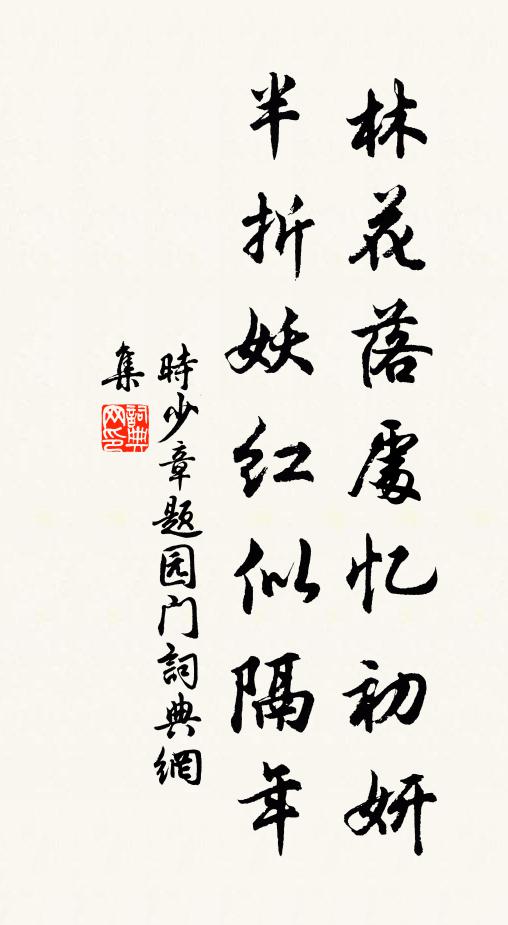 林花落處忆初妍
半折妖红似隔年
時少章题园门詞典網
集
詞典网印